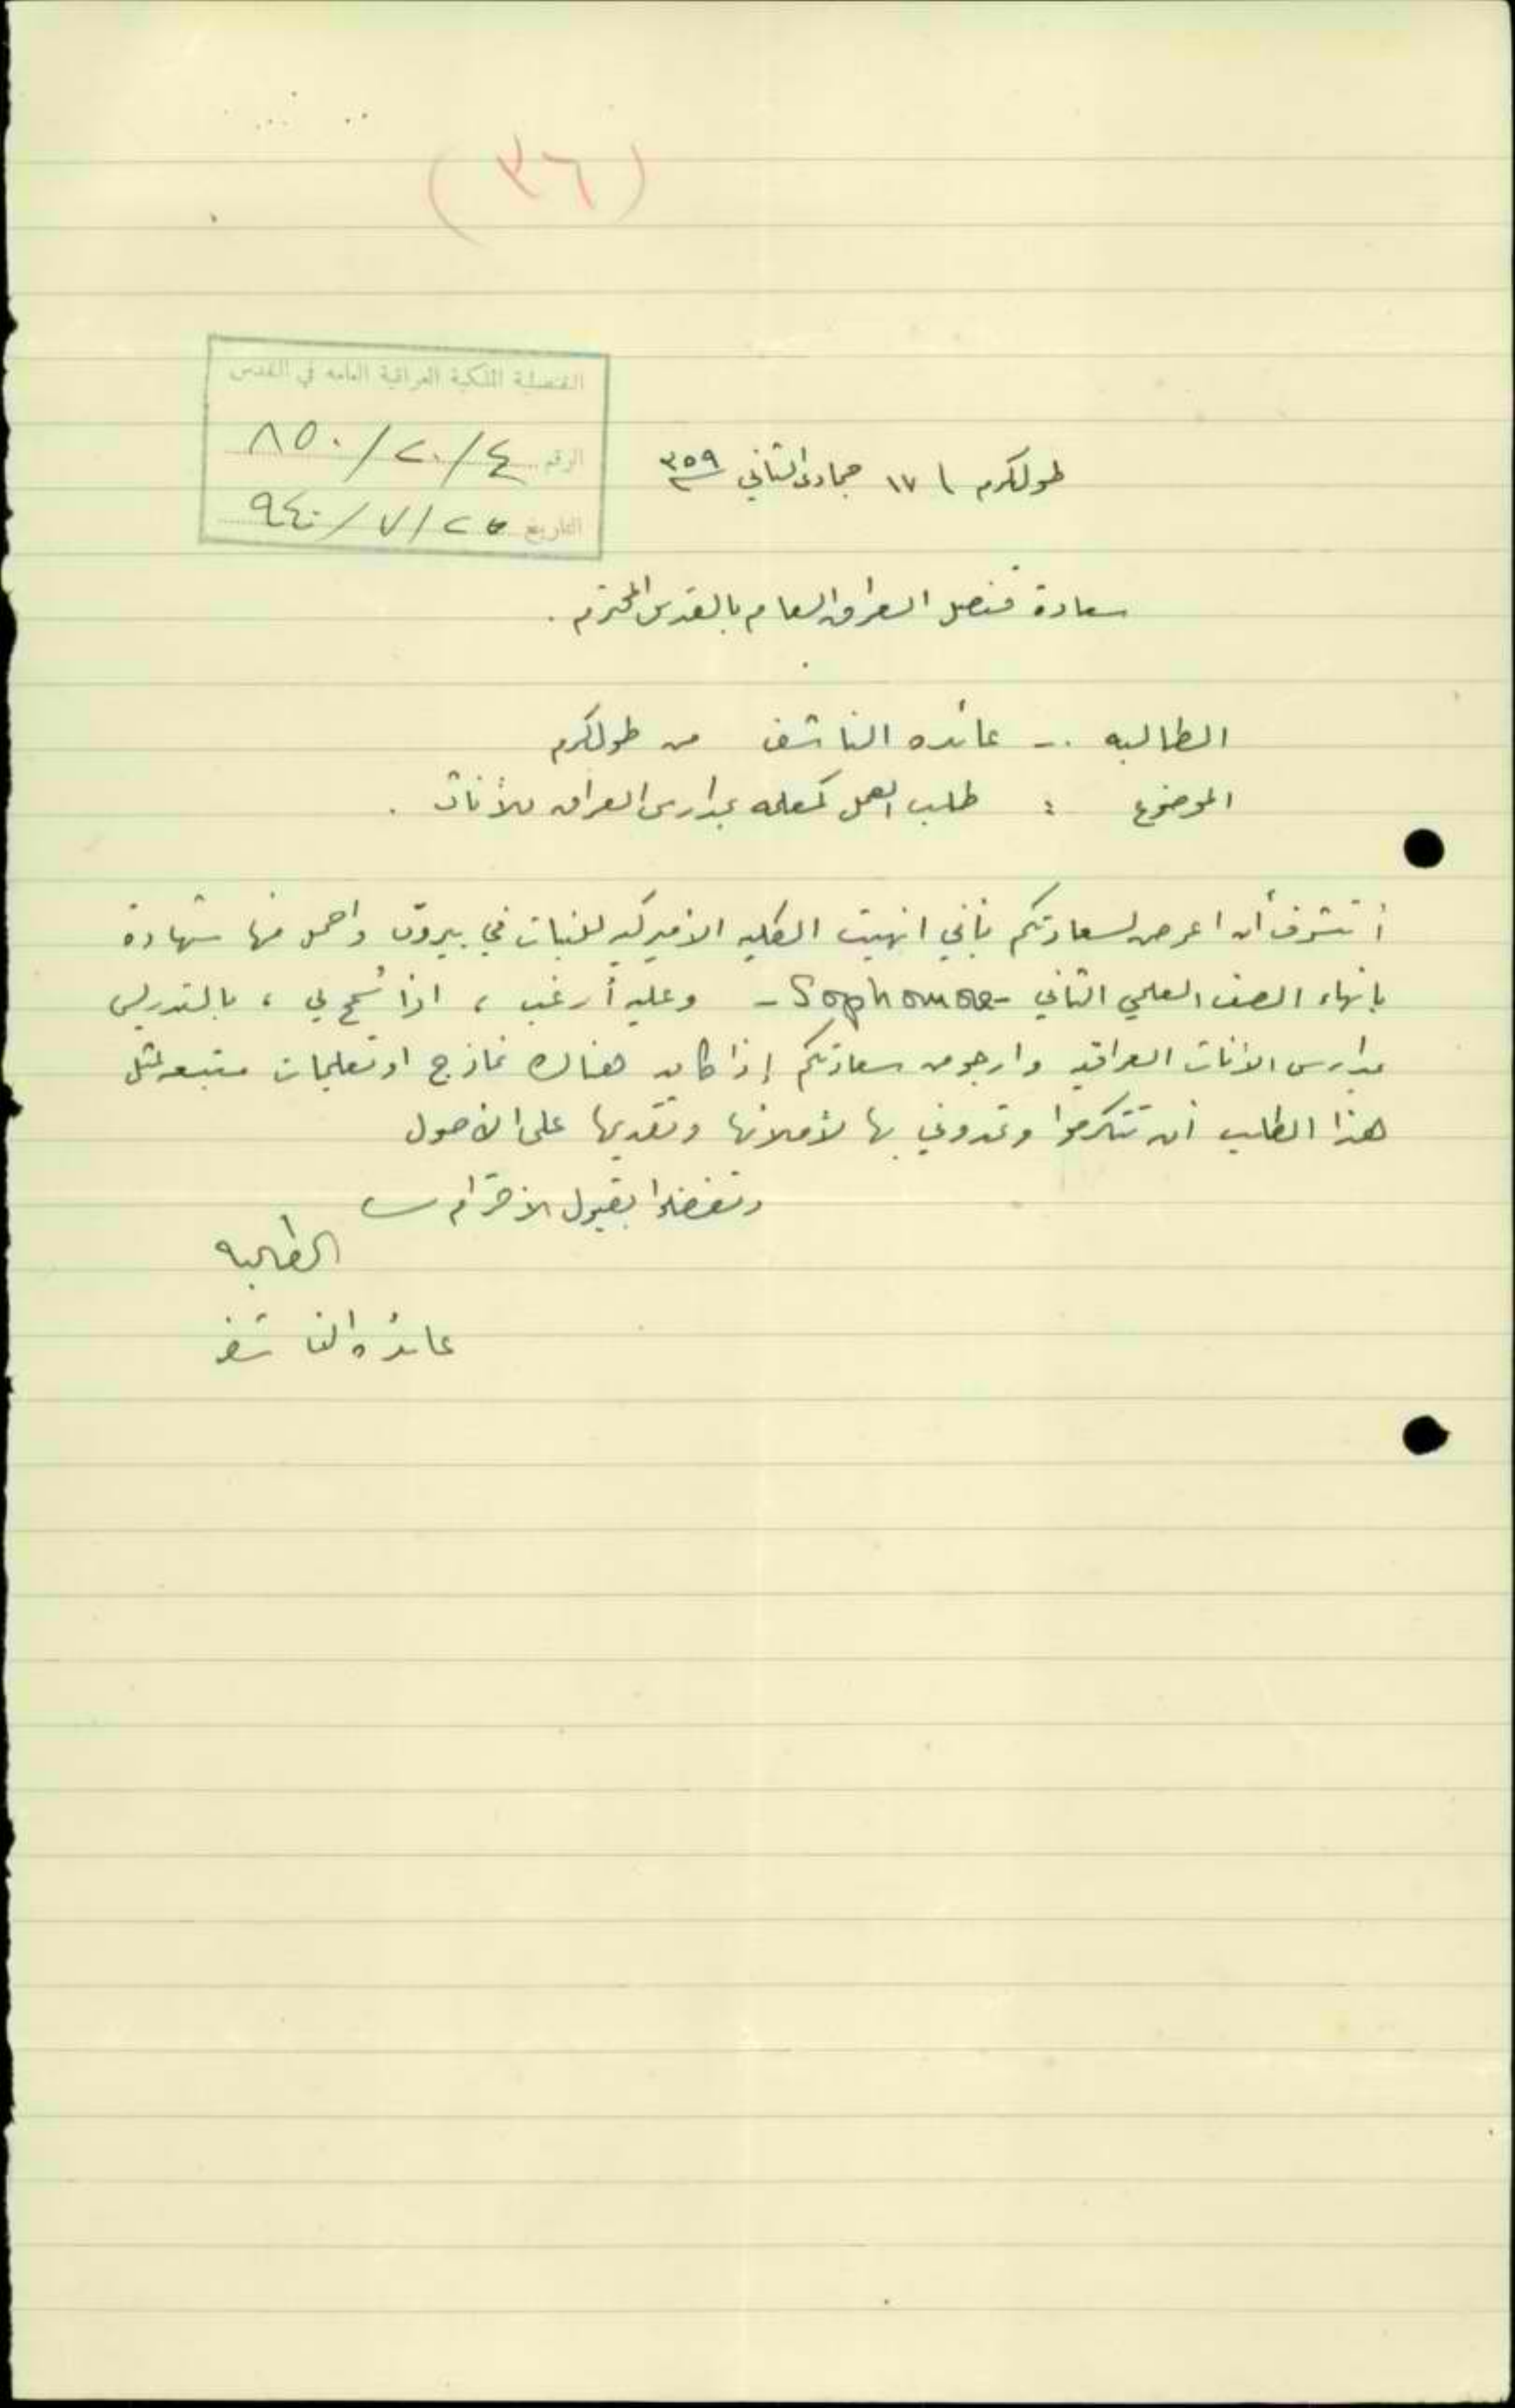 (٣٦)
القنصلية الملكية العراقية العامه في القدس
الرقم ٤/٢٠/٨٥٠
التاريخ ٢٥/٧/٩٤٠
طولكرم ١٧ جمادى الثاني ٣٥٩
سعادة قنصل العراق العام بالقدس المحترم .
الطالبه .- عائده الناشف من طولكرم
الموضوع : طلب العمل كمعلمه بمدارس العراق للأناث .
أتشرف أن اعرض لسعادتكم بأني انهيت الكليه الاميركيه للبنات في بيروت واحمل منها شهادة
بانهاء الصف العلمي الثاني - Sophomore - وعليه أرغب ، اذا سُمح لي ، بالتدريس
بمدارس الاناث العراقيه وارجو من سعادتكم إذا كان هناك نماذج او تعليمات متبعه لمثل
هذا الطلب ان تتكرموا وتمدوني بها لأملائها وتقديمها على الاصول
وتفضلوا بقبول الاحترام
الطالبه
عائده الناشف